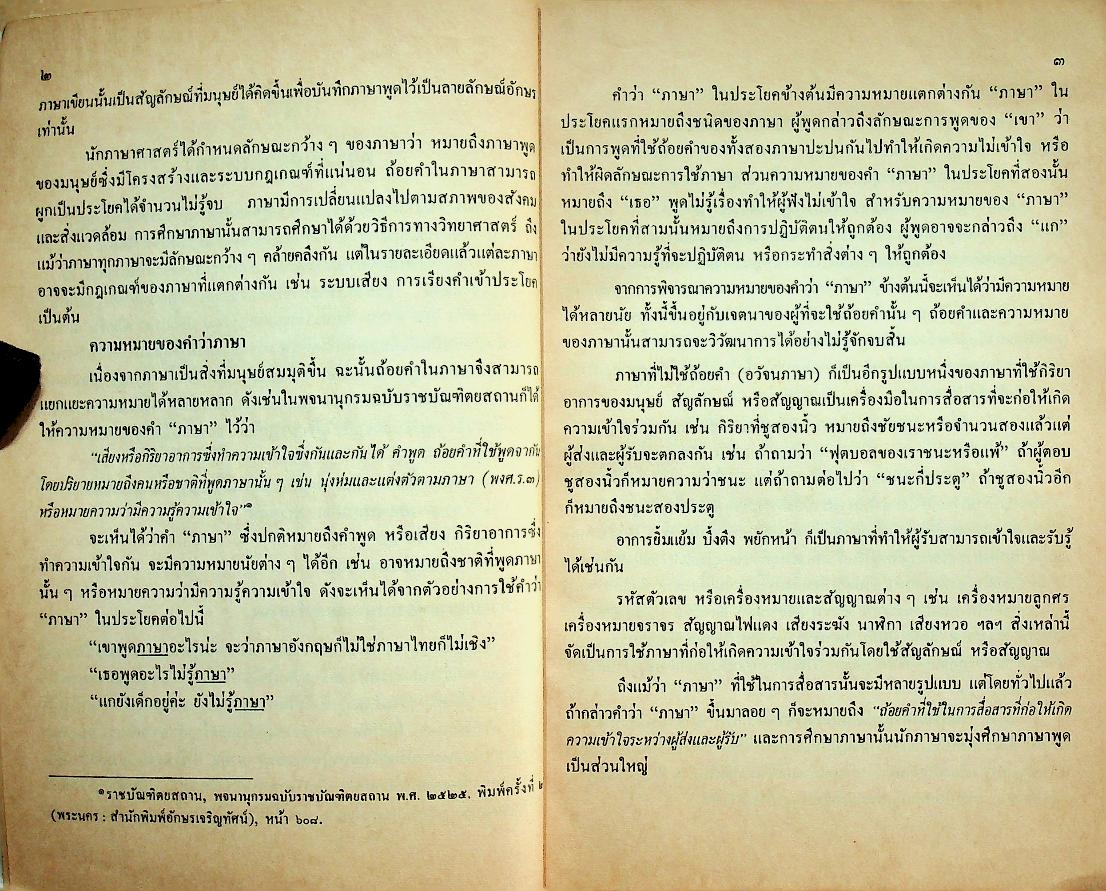 ๒
ภาษาเขียนนั้นเป็นสัญลักษณ์ที่มนุษย์ได้คิดขึ้นเพื่อบันทึกภาษาพูดไว้เป็นลายลักษณ์อักษร
เท่านั้น
นักภาษาศาสตร์ได้กำหนดลักษณะกว้าง ๆ ของภาษาว่า หมายถึงภาษาพูด
ของมนุษย์ซึ่งมีโครงสร้างและระบบกฎเกณฑ์ที่แน่นอน ถ้อยคำในภาษาสามารถ
ผูกเป็นประโยคได้จำนวนไม่รู้จบ ภาษามีการเปลี่ยนแปลงไปตามสภาพของสังคม
และสิ่งแวดล้อม การศึกษาภาษานั้นสามารถศึกษาได้ด้วยวิธีการทางวิทยาศาสตร์ ถึง
แม้ว่าภาษาทุกภาษาจะมีลักษณะกว้าง ๆ คล้ายคลึงกัน แต่ในรายละเอียดแล้วแต่ละภาษา
อาจจะมีกฎเกณฑ์ของภาษาที่แตกต่างกัน เช่น ระบบเสียง การเรียงคำเข้าประโยค
เป็นต้น
ความหมายของคำว่าภาษา
เนื่องจากภาษาเป็นสิ่งที่มนุษย์สมมุติขึ้น ฉะนั้นถ้อยคำในภาษาจึงสามารถ
แยกแยะความหมายได้หลายหลาก ดังเช่นในพจนานุกรมฉบับราชบัณฑิตยสถานก็ได้
ให้ความหมายของคำ “ภาษา” ไว้ว่า
“เสียงหรือกิริยาอาการซึ่งทำความเข้าใจซึ่งกันและกันได้ คำพูด ถ้อยคำที่ใช้พูดจากัน
โดยปริยายหมายถึงคนหรือชาติที่พูดภาษานั้น ๆ เช่น นุ่งห่มและแต่งตัวตามภาษา (พงศ.ร.๓)
หรือหมายความว่ามีความรู้ความเข้าใจ”๑
จะเห็นได้ว่าคำ “ภาษา” ซึ่งปกติหมายถึงคำพูด หรือเสียง กิริยาอาการซึ่ง
ทำความเข้าใจกัน จะมีความหมายนัยต่าง ๆ ได้อีก เช่น อาจหมายถึงชาติที่พูดภาษา
นั้น ๆ หรือหมายความว่ามีความรู้ความเข้าใจ ดังจะเห็นได้จากตัวอย่างการใช้คำว่า
“ภาษา” ในประโยคต่อไปนี้
“เขาพูดภาษาอะไรน่ะ จะว่าภาษาอังกฤษก็ไม่ใช่ภาษาไทยก็ไม่เชิง”
“เธอพูดอะไรไม่รู้ภาษา”
“แกยังเด็กอยู่ค่ะ ยังไม่รู้ภาษา”
๑ราชบัณฑิตยสถาน, พจนานุกรมฉบับราชบัณฑิตยสถาน พ.ศ. ๒๕๒๕. พิมพ์ครั้งที่ ๒
(พระนคร : สำนักพิมพ์อักษรเจริญทัศน์), หน้า ๖๐๘.
๓
คำว่า “ภาษา” ในประโยคข้างต้นมีความหมายแตกต่างกัน “ภาษา” ใน
ประโยคแรกหมายถึงชนิดของภาษา ผู้พูดกล่าวถึงลักษณะการพูดของ “เขา” ว่า
เป็นการพูดที่ใช้ถ้อยคำของทั้งสองภาษาปะปนกันไปทำให้เกิดความไม่เข้าใจ หรือ
ทำให้ผิดลักษณะการใช้ภาษา ส่วนความหมายของคำ “ภาษา” ในประโยคที่สองนั้น
หมายถึง “เธอ” พูดไม่รู้เรื่องทำให้ผู้ฟังไม่เข้าใจ สำหรับความหมายของ “ภาษา”
ในประโยคที่สามนั้นหมายถึงการปฏิบัติตนให้ถูกต้อง ผู้พูดอาจจะกล่าวถึง “แก”
ว่ายังไม่มีความรู้ที่จะปฏิบัติตน หรือกระทำสิ่งต่าง ๆ ให้ถูกต้อง
จากการพิจารณาความหมายของคำว่า “ภาษา” ข้างต้นนี้จะเห็นได้ว่ามีความหมาย
ได้หลายนัย ทั้งนี้ขึ้นอยู่กับเจตนาของผู้ที่จะใช้ถ้อยคำนั้น ๆ ถ้อยคำและความหมาย
ของภาษานั้นสามารถจะวิวัฒนาการได้อย่างไม่รู้จักจบสิ้น
ภาษาที่ไม่ใช้ถ้อยคำ (อวัจนภาษา) ก็เป็นอีกรูปแบบหนึ่งของภาษาที่ใช้กิริยา
อาการของมนุษย์ สัญลักษณ์ หรือสัญญาณเป็นเครื่องมือในการสื่อสารที่จะก่อให้เกิด
ความเข้าใจร่วมกัน เช่น กิริยาที่ชูสองนิ้ว หมายถึงชัยชนะหรือจำนวนสองแล้วแต่
ผู้ส่งและผู้รับจะตกลงกัน เช่น ถ้าถามว่า “ฟุตบอลของเราชนะหรือแพ้” ถ้าผู้ตอบ
ชูสองนิ้วก็หมายความว่าชนะ แต่ถ้าถามต่อไปว่า “ชนะกี่ประตู” ถ้าชูสองนิ้วอีก
ก็หมายถึงชนะสองประตู
อาการยิ้มแย้ม บึ้งตึง พยักหน้า ก็เป็นภาษาที่ทำให้ผู้รับสามารถเข้าใจและรับรู้
ได้เช่นกัน
รหัสตัวเลข หรือเครื่องหมายและสัญญาณต่าง ๆ เช่น เครื่องหมายลูกศร
เครื่องหมายจราจร สัญญาณไฟแดง เสียงระฆัง นาฬิกา เสียงหวอ ฯลฯ สิ่งเหล่านี้
จัดเป็นการใช้ภาษาที่ก่อให้เกิดความเข้าใจร่วมกันโดยใช้สัญลักษณ์ หรือสัญญาณ
ถึงแม้ว่า “ภาษา” ที่ใช้ในการสื่อสารนั้นจะมีหลายรูปแบบ แต่โดยทั่วไปแล้ว
ถ้ากล่าวคำว่า “ภาษา” ขึ้นมาลอย ๆ ก็จะหมายถึง “ถ้อยคำที่ใช้ในการสื่อสารที่ก่อให้เกิด
ความเข้าใจระหว่างผู้ส่งและผู้รับ” และการศึกษาภาษานั้นนักภาษาจะมุ่งศึกษาภาษาพูด
เป็นส่วนใหญ่